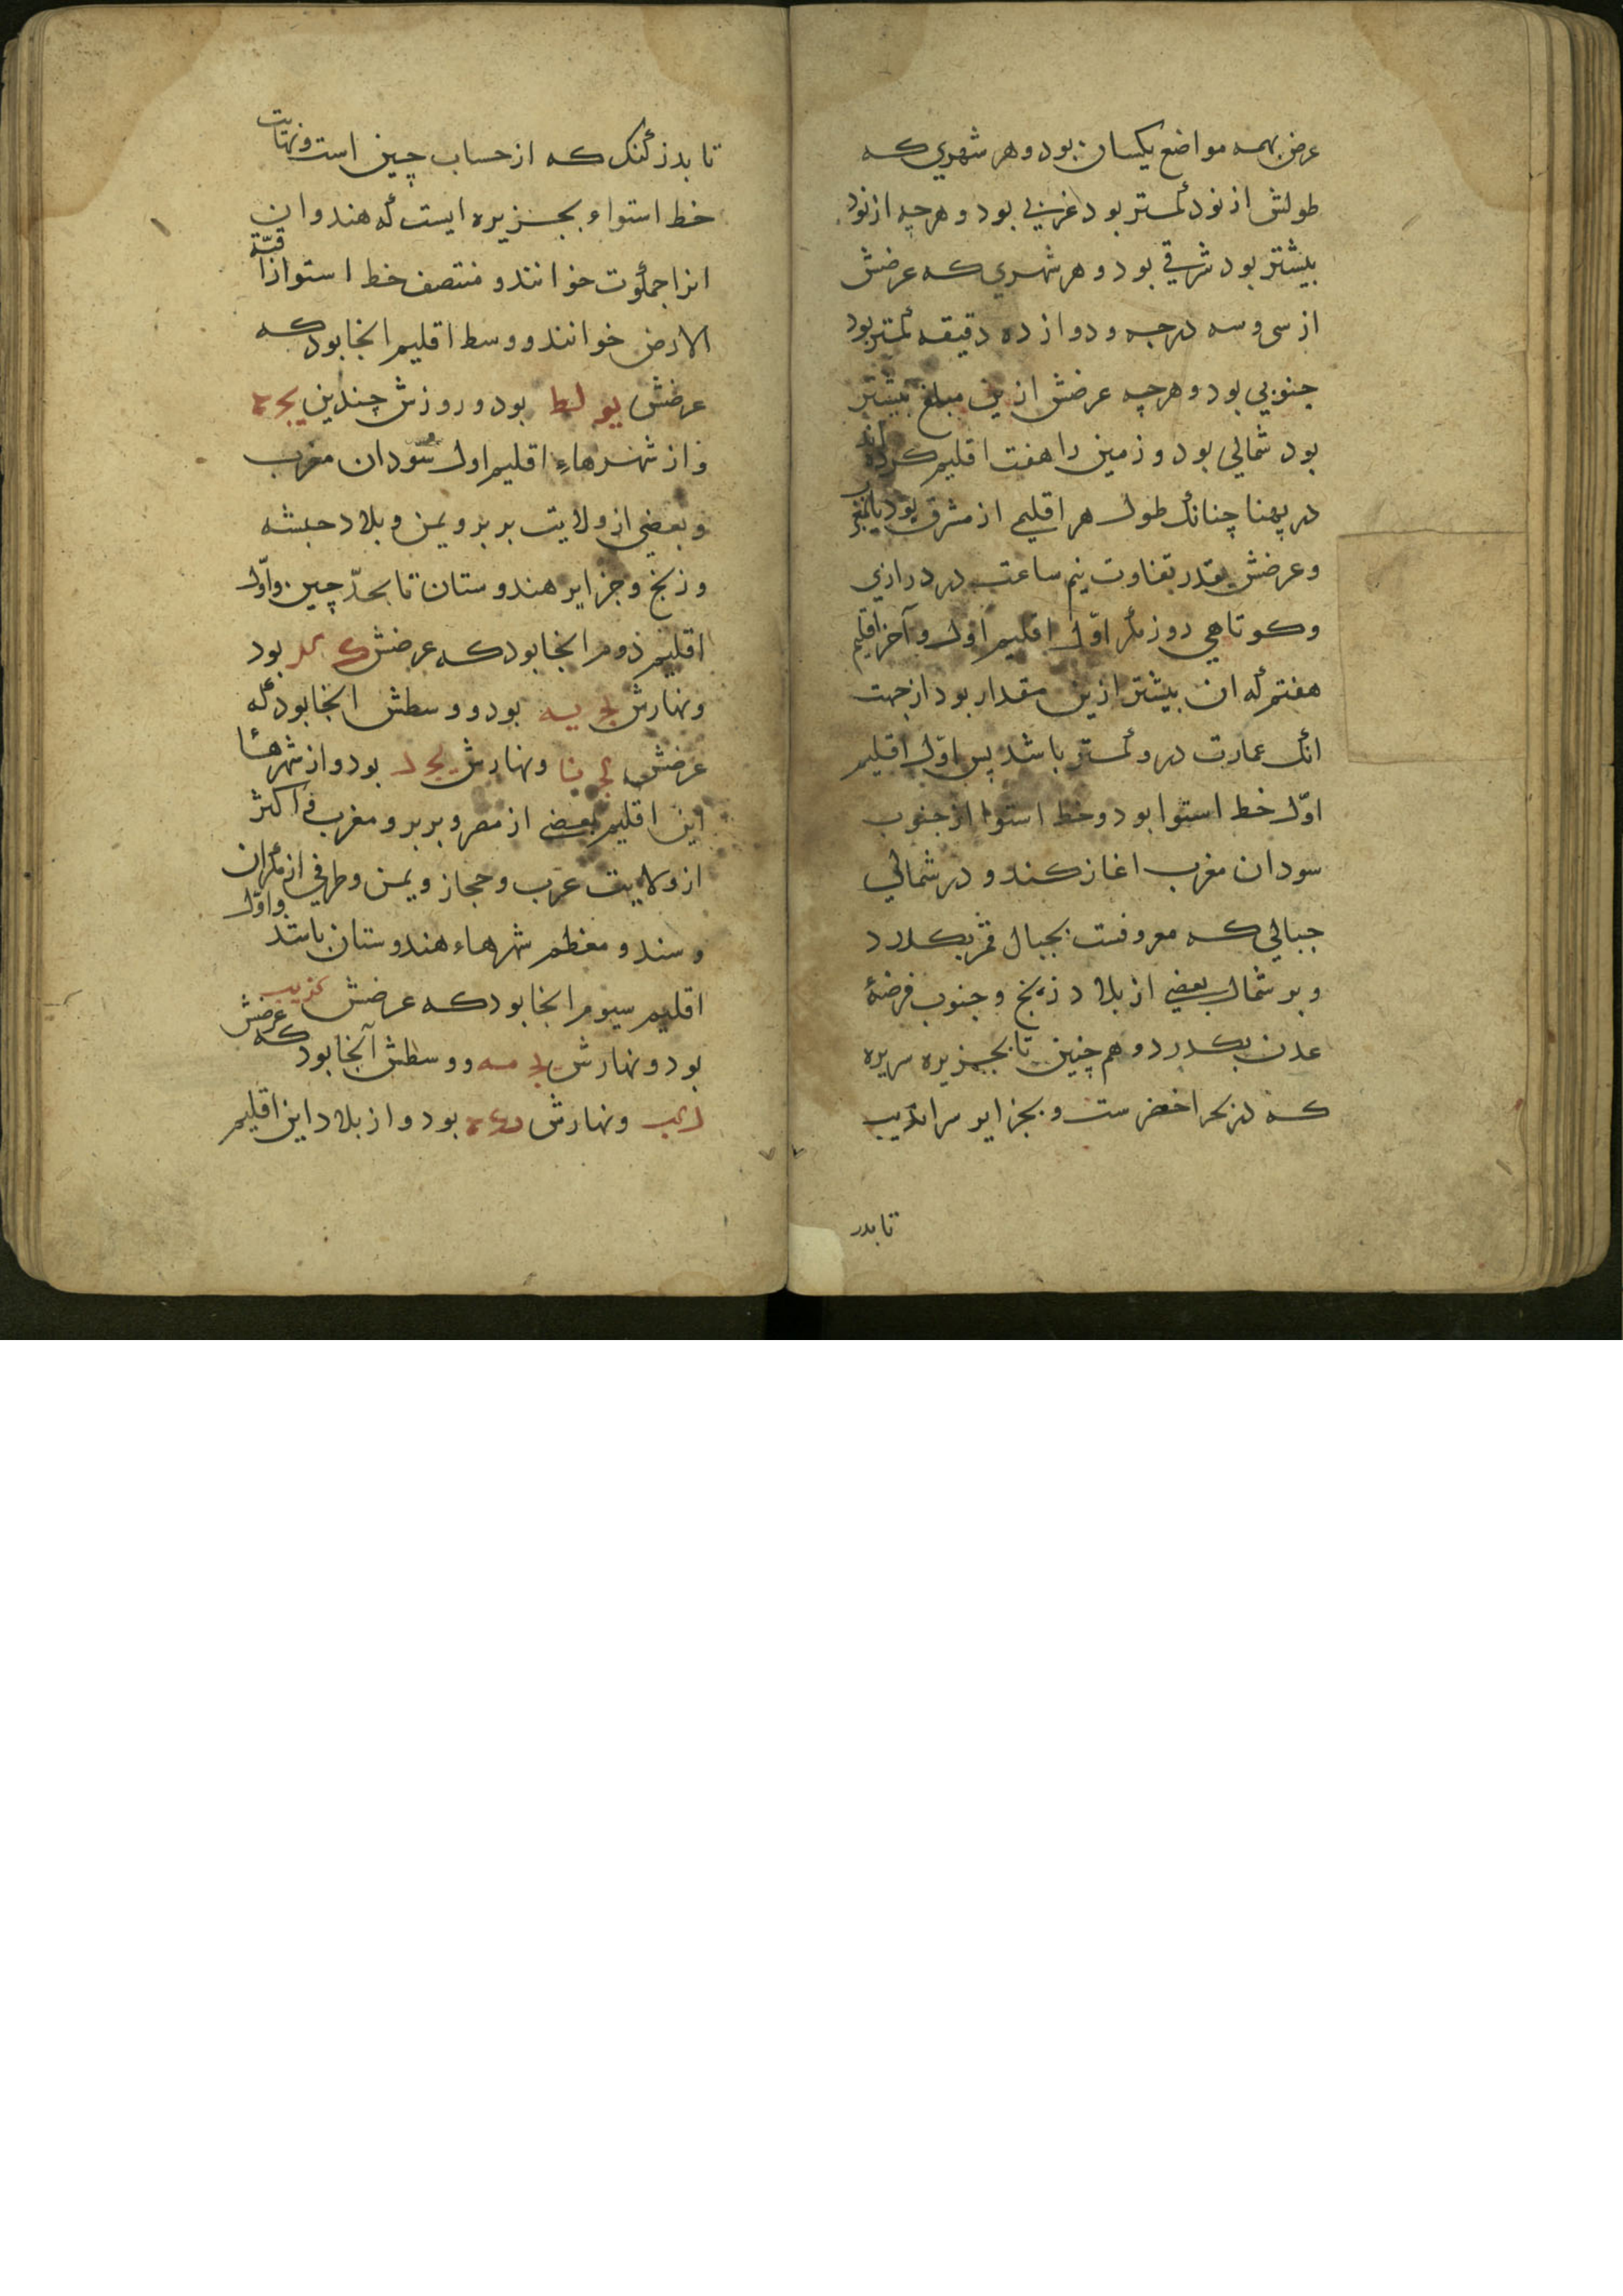 عرض بهمه مواضع یکسان بود و هر شهری که
طولش از نود کمتر بود غربی بود و هرچه از نود
بیشتر بود شرقی بود و هر شهری که عرضش
از سی و سه درجه و دوازده دقیقه کمتر بود
جنوبی بود و هرچه عرضش ازین مبلغ بیشتر
بود شمالی بود و زمین را هفت اقلیم کرده اند
در پهنا چنانک طول هر اقلیمی از مشرق بود تا بمغرب
و عرضش بقدر تفاوت نیم ساعت در درازی
و کوتاهی روز مگر اوّل اقلیم اول و آخر اقلیم
هفتم که ان بیشتر ازین مقدار بود از جهت
انک عمارت درو کمتر باشد پس اوّل اقلیم
اوّل خط استوا بود و خط استوا از جنوب
سودان مغرب اغاز کند و در شمالی
جبالی که معروفست بجبال قمر بکذرد
و بر شمال بعضی از بلاد زنج و جنوب فرضهٔ
عدن بکذرد و هم چنین تا بجزیره سریره
که در بحر اخضر ست و بجزایر سراندیب
تا بدز
تا بدز کنک که از حساب چین است و نهایت
خط استواء بجزیره ایست که هندوان
انرا جمکوت خوانند و منتصف خط استوا را قبّة
الارض خوانند و وسط اقلیم انجا بود که
عرضش یو لط بود و روزش چندین یج ه
و از شهرهاءِ اقلیم اول سُودان مغرب
و بعضی از ولایت بربر و یمن و بلاد حبشه
و زنج و جزایر هندوستان تا بحدّ چین و اوّل
اقلیم دوم انجا بود که عرضش ک کد بود
و نهارش یج یه بود و وسطش انجا بود که
عرضش کج نا و نهارش یج ل بود و از شهرها
این اقلیم بعضی از مصر و بربر و مغرب و اکثر
از ولایت عرب و حجاز و یمن و طرفی از مکران
و سند و معظم شهرهاء هندوستان باشد و اوّل
اقلیم سیوم انجا بود که عرضش کز یب
بود و نهارش یج مه و وسطش آنجا بود که عرضش
بود و از بلاد این اقلیم